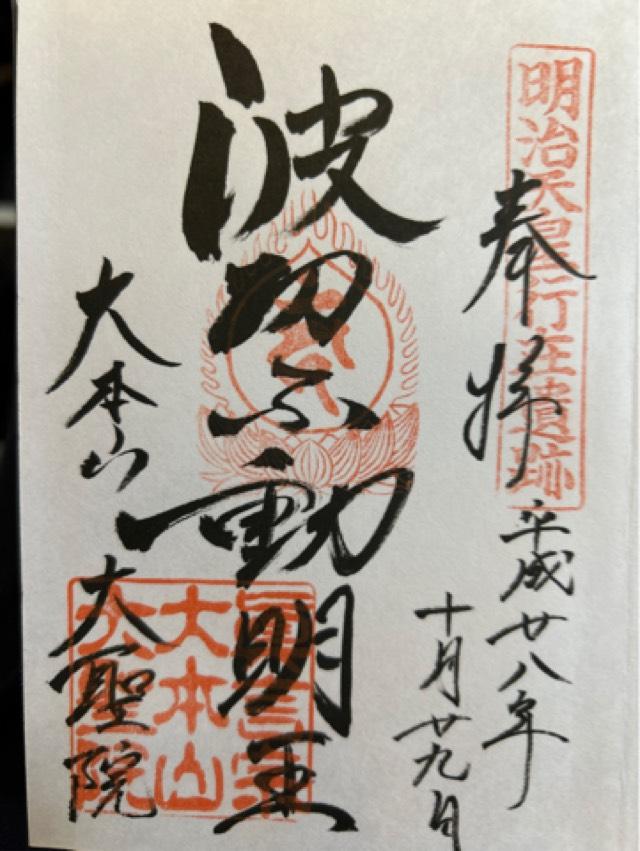 明治天皇行在遺跡
奉拝
平成廿八年
十月廿九日
波切不動明王
大本山 大聖院
真言宗
大本山
大聖院